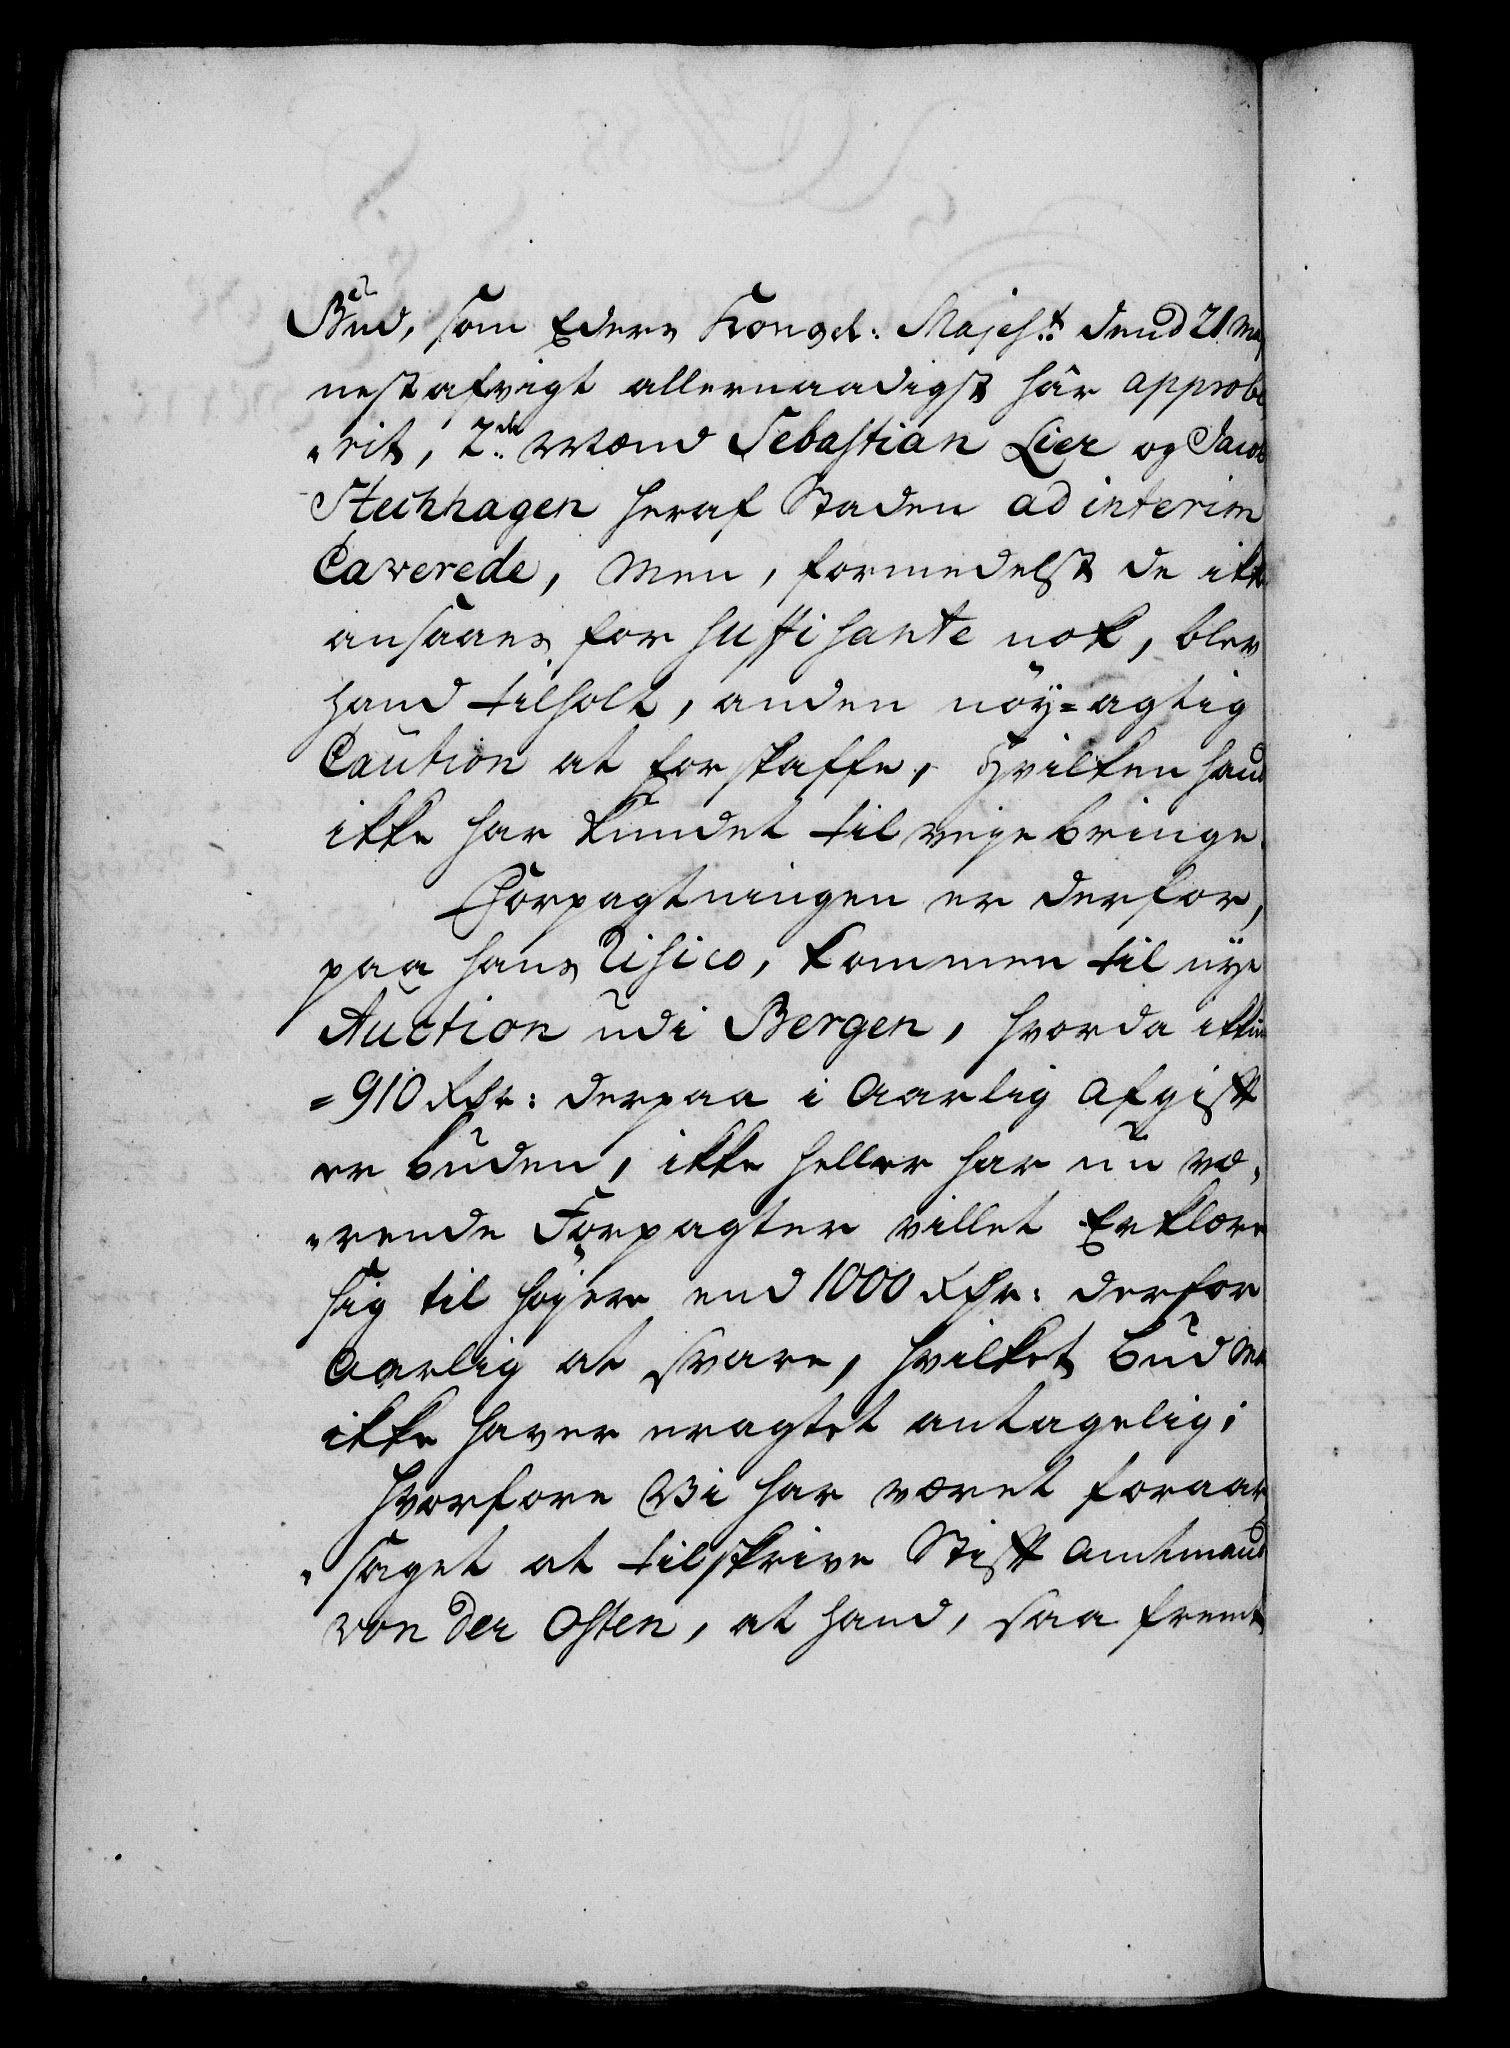 Bud, som Eders Kongel: Majest:t dend 21 Maj
nestafvigt allernaadigst har approbe
"rit, 2de Mænd Sebastian Lier og Jacob
Stechhagen heraf Staden ad interim
Caverede, men, formedelst de ikke
ansaaes for suffisante nok, blev
hand tilholt, anden nöy=agtig
Caution at forskaffe, hvilken hand
ikke har kundet tilvejebringe.
Forpagtningen er derfor,
paa hans Risico, kommen til nye
Auction udi Bergen, hvorda ikkun
=910 Rdr: derpaa i aarlig afgift
er buden, ikke heller har nu væ,
"rende Forpagter villet Erklære
sig til højere end 1000 Rdr: derfor
aarlig at svare, hvilket bud
ikke haver eragtet antagelig;
Hvorfore Vi har været foraar
"saget at tilskrive Stift Amtmand
von der Osten, at hand, saa fremt